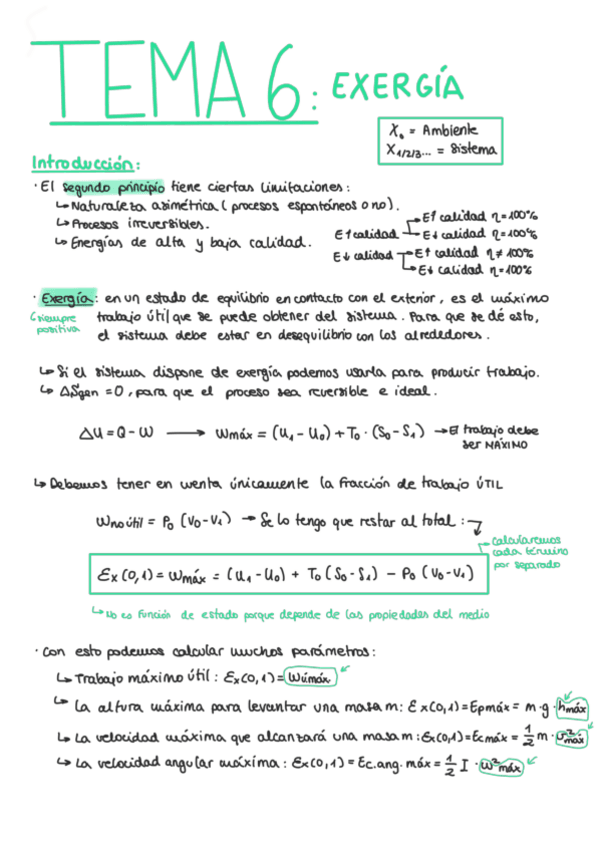 TEMA 6: EXERGÍA
X₀ = Ambiente
X₁/₂/₃... = Sistema
Introducción:
· El segundo principio tiene ciertas limitaciones:
↳ Naturaleza asimétrica (procesos espontáneos o no).
↳ Procesos irreversibles.
↳ Energías de alta y baja calidad.
E↑calidad → E↑ calidad η = 100%
→ E↓ calidad η = 100%
E↓calidad → E↑ calidad η ≠ 100%
→ E↓ calidad η = 100%
· Exergía: en un estado de equilibrio en contacto con el exterior, es el máximo
(siempre positiva
trabajo útil que se puede obtener del sistema. Para que se dé esto,
el sistema debe estar en desequilibrio con los alrededores.
↳ Si el sistema dispone de exergía podemos usarla para producir trabajo.
↳ ΔSgen = 0, para que el proceso sea reversible e ideal.
ΔU = Q - W → Wmáx = (U₁ - U₀) + T₀ · (S₀ - S₁) → El trabajo debe
ser MÁXIMO
↳ Debemos tener en cuenta únicamente la fracción de trabajo ÚTIL
Wno útil = P₀ (V₀ - V₁) → Se lo tengo que restar al total:
calcularemos
cada término
por separado
Ex (0,1) = Wmáx = (U₁ - U₀) + T₀ (S₀ - S₁) - P₀ (V₀ - V₁)
↳ No es función de estado porque depende de las propiedades del medio
· Con esto podemos calcular muchos parámetros:
↳ Trabajo máximo útil: Ex(0,1) = Wúmáx
↳ La altura máxima para levantar una masa m: Ex(0,1) = Epmáx = m · g · hmáx
↳ La velocidad máxima que alcanzará una masa m: Ex(0,1) = Ecmáx = 1/2 m · v²máx
↳ La velocidad angular máxima: Ex(0,1) = Ec.ang. máx = 1/2 I · ω²máx